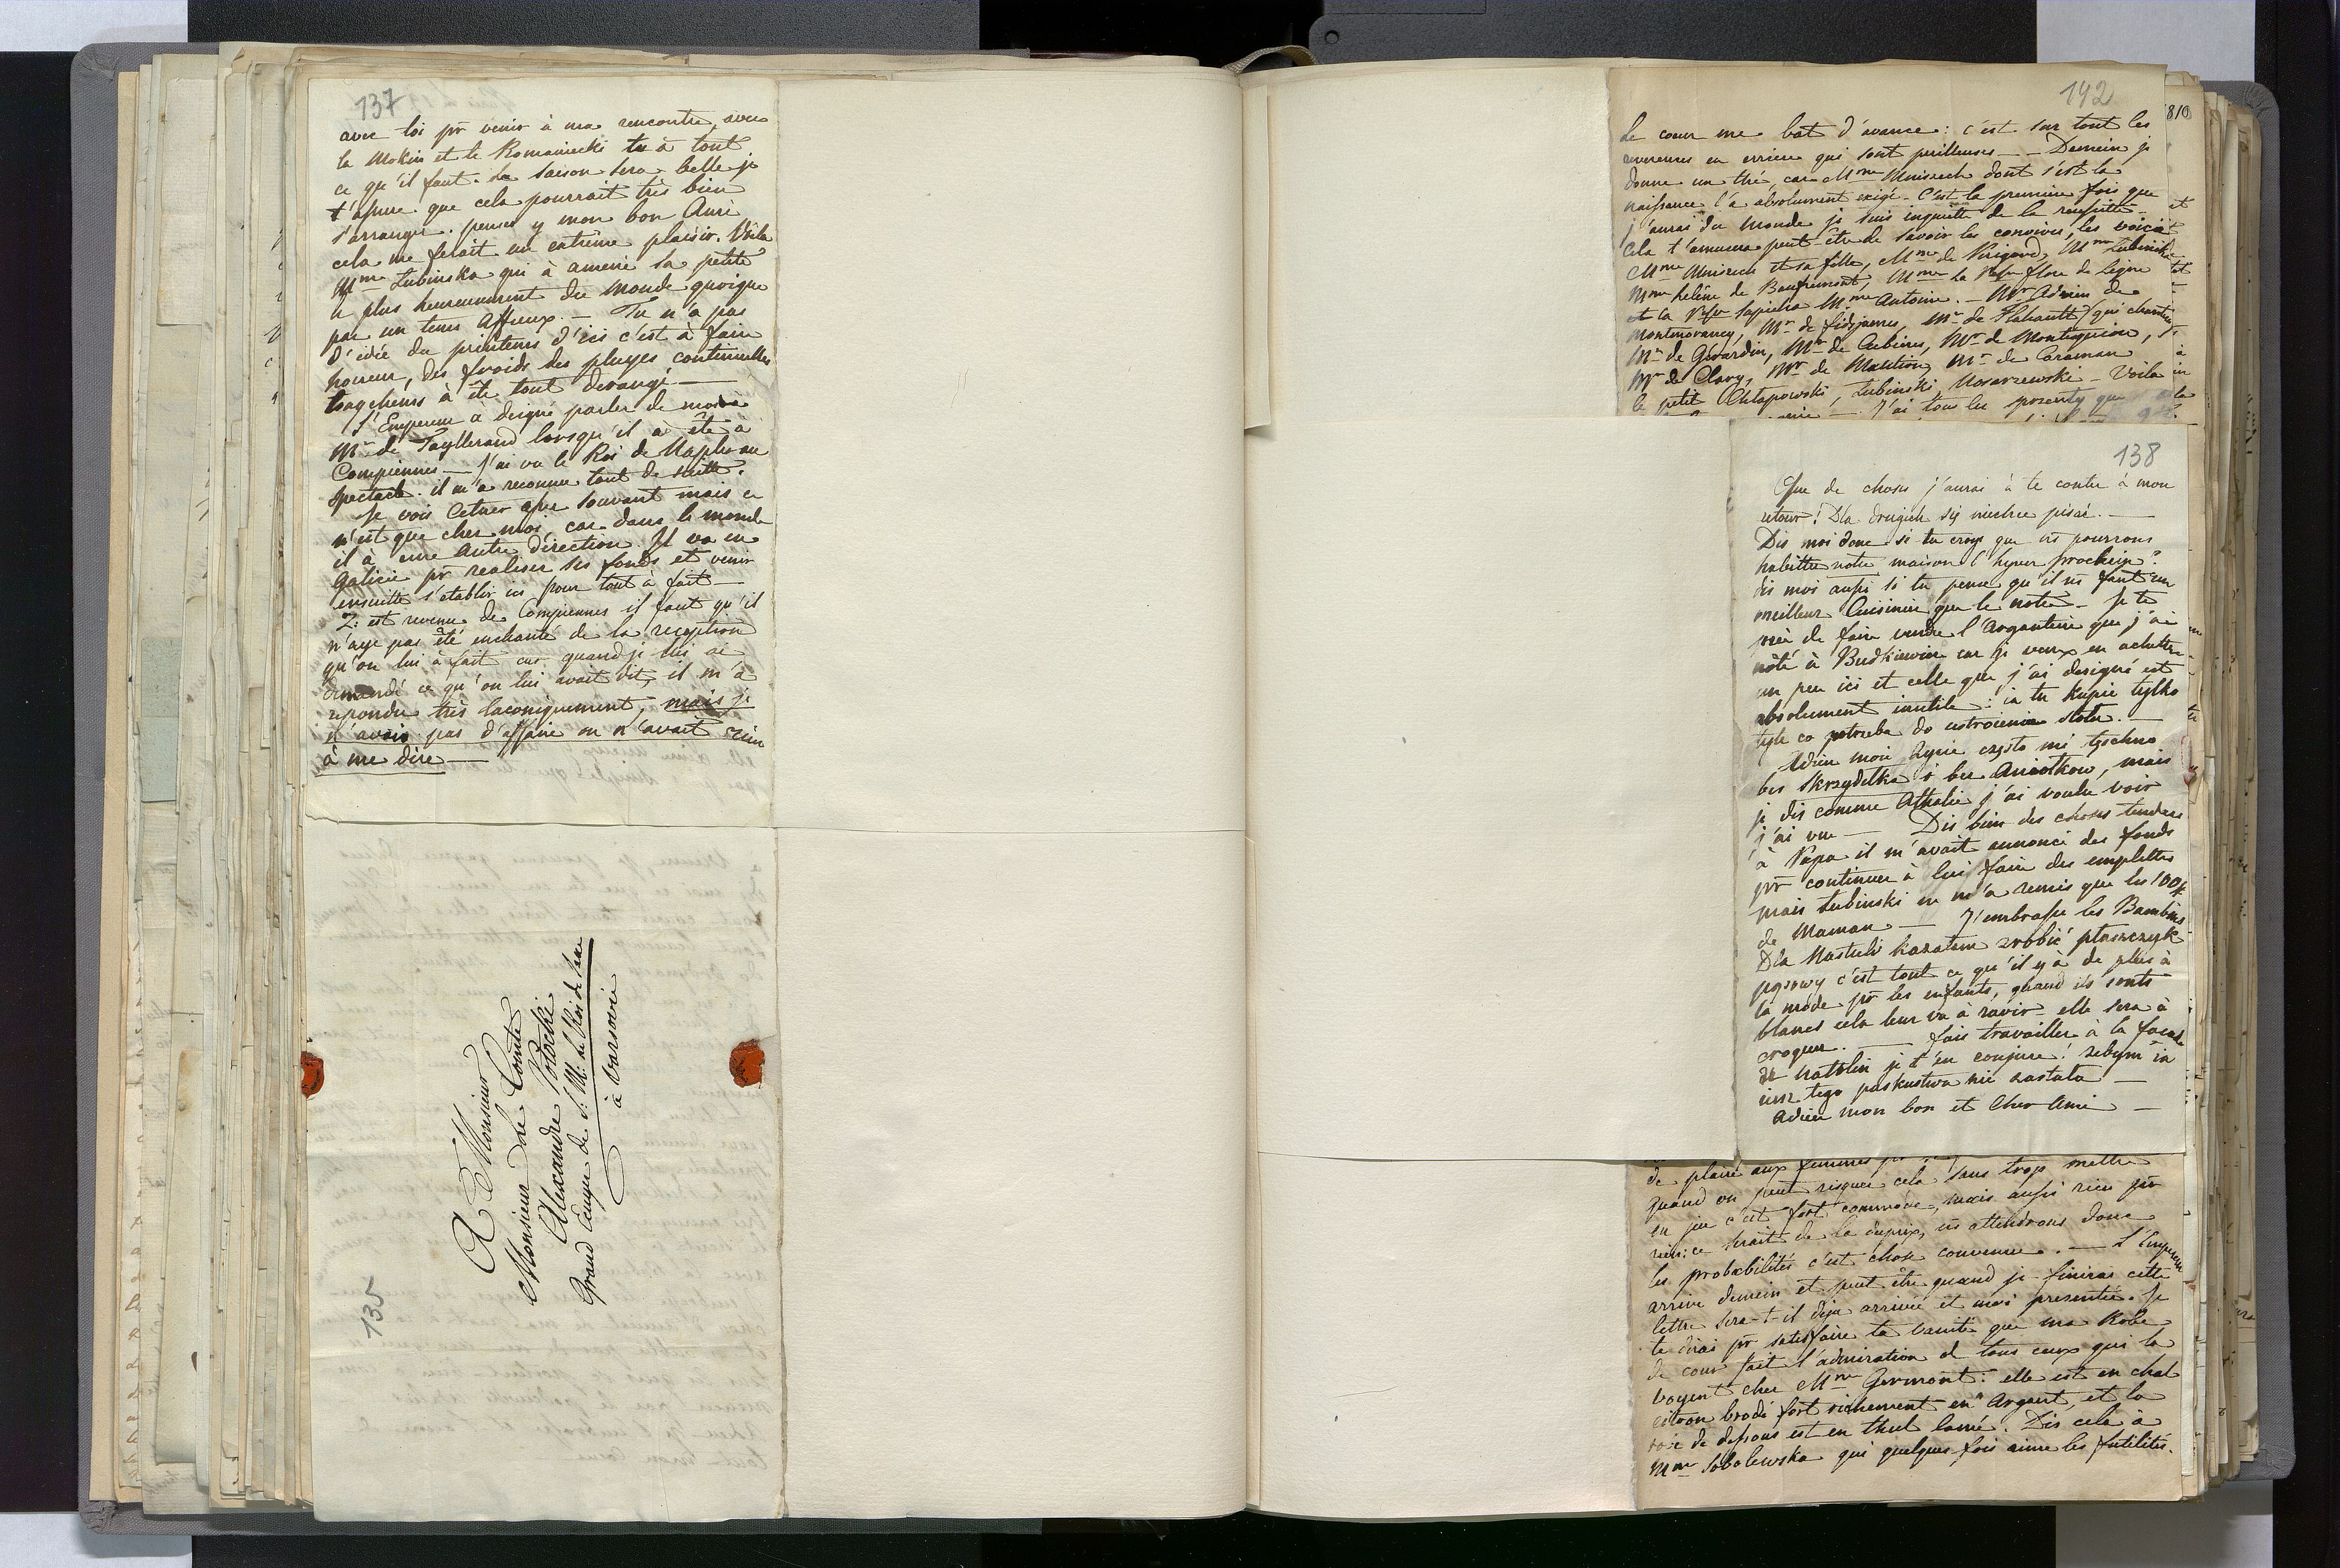 137
avec toi pr venir à ma rencontre, avec
la Mokin et le Romaniecki tu à tout
ce qu'il faut. La saison sera belle je
t'assure que cela pourrait très bien
s'arranger. penses y mon bon Ami
cela me ferait un extrême plaisir. Voila
Mme Lubinska qui à amené sa petite
le plus heureusement du Monde quoique
par un tems affreux. — Tu n'a pas
d'idée du printems d'ici c'est à faire
horreur, des froids des pluyes continuelles
Longchems à été tout derangé —
L'Empereur à deigné parler de moi à
Mr de Tayllerand lorsqu'il a été à
Compiennes — J'ai vu le Roi de Naples au
spectacle. il m'a reconnu tout de suitte.
Je vois Cetner assez souvant mais ce
n'est que chez moi, car dans le monde
il à une autre direction. Il va en
Galicie pr realiser ses fonds et venir
ensuitte s'etablir ici pour tout à fait —
Z: est revenu de Compiennes il faut qu'il
n'aye pas été enchanté de la reception
qu'on lui à fait car quand je lui ai
demandé ce qu'on lui avait dit, il m'a
repondu très laconiquement, mais je
n'avais pas d'affaire on n'avait rien
à me dire —
A Monsieur
Monsieur Le Comte
Alexandre Potocki
Grand Ecuyer de S: M: le Roi de Saxe
à Varsovie
135
142
810
Le coeur me bat d'avance: c'est sur tout les
reverences en arriere qui sont perilleuses — Demein je
donne un thé, car Mme Mniszech dont s'est la
naissance l'a absolument exigé. C'est la premiere fois que
j'aurai du monde je suis inquiette de la reussitte —
Cela t'amusera peut-être de savoir les convives, les voici
Mme Mniszech et sa fille, Mme de Perigord, Mme Lubinska
Mme helène de Baufremont, Mme la Psse flore de Ligne
et la Psse Sapieha Mme Antoine. — Mr Adrien de
Montmorancy, Mr de fidzjames, Mr de Flahautt (qui chantera
Mr de Girardin, Mr de Cubieres, Mr de Montesquiou,
Mr de Clary, Mr de Maution, Mr de Caraman
le petit Chłapowski, Lubinski Mosarzewski — Voila
J'ai tous les
138
Que de choses j'aurai à te conter à mon
retour! Dla drugich się niechce pisać. —
Dis moi donc si tu croys que ns pourrons
habitter notre maison l'hyver prochein?
dis moi aussi si tu pense qu'il ns faut un
meilleur Cuisinier que le notre — Je te
prie de faire vendre l'Argenterie que j'ai
noté à Budkiewicz car je veux en achetter
un peu ici et celle que j'ai designé est
absolument inutile: ia tu kupie tylko
tyle co potrzeba do ustroienia stołu. —
Adieu moie życie często mi tęschno
bez skrzydełka i bez Aniołkow, mais
je dis comme Athalie j'ai voulu voir
j'ai vu — Dis bien des choses tendres
à Papa il m'avait annoncé des fonds
pr continuer à lui faire des emplettes
mais Lubinski ne m'a remis que les 100#
de Maman — J'embrasse les Bambins
Dla Nastuli kazałam zrobić płaszczyk
pąsowy c'est tout ce qu'il y à de plus à
la mode pr les enfants, quand ils sonts
blancs cela leur va à ravir — elle sera à
croquer. — fais travailler à la facade
de Natolin je t'en conjure! żebym ia
iusz tego paskustwa nie zastała —
Adieu mon bon et Cher Ami —
de plaire aux femmes
quand on peut risquer cela sans trop mettre
en jeu c'est fort commode, mais aussi rien pr
rien: ce serait de la duprix, ns attendrons donc
les probabilités c'est chose convenue. — L'Empereur
arrive demein et peut être quand je finirai cette
lettre sera-t-il deja arrivé et moi presentée. Je
te dirai pr satisfaire ta vanité que ma Robe
de cour fait l'admiration de tous ceux qui la
voyent chez Mme Germont: elle est en chal
citron brodé fort richement en Argent, et la
robe de dessous est en thul lamé. Dis cela à
Mme Sobolewska qui quelques fois aime les futilités.